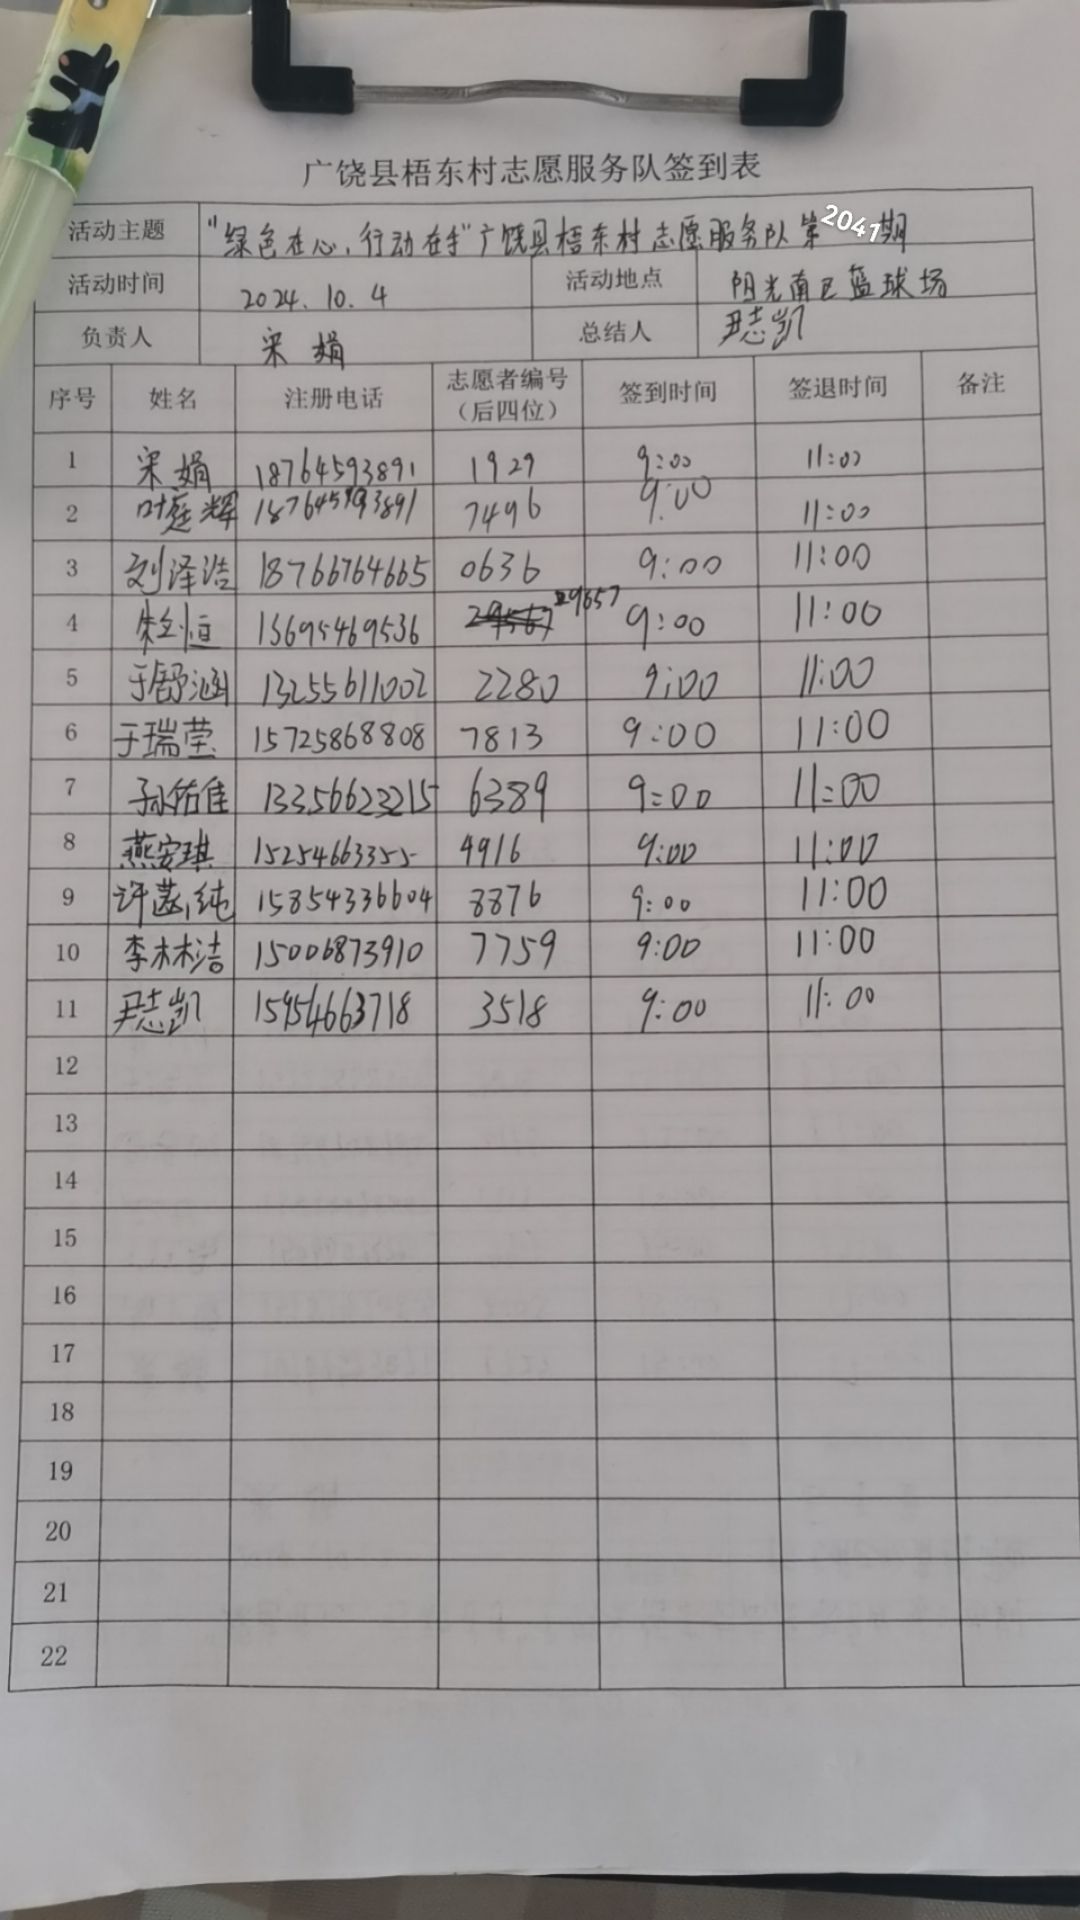 广饶县梧东村志愿服务队签到表
活动主题 "绿色在心,行动在手"广饶县梧东村志愿服务队第2041期
活动时间 2024.10.4 活动地点 阳光南区篮球场
负责人 宋娟 总结人 尹志凯
序号 姓名 注册电话 志愿者编号（后四位） 签到时间 签退时间 备注
1 宋娟 18764593891 1929 9:00 11:00
2 叶莛辉 18764593891 7496 9:00 11:00
3 刘泽浩 18766764665 0636 9:00 11:00
4 13695469536 9657 9:00 11:00
5 于舒涵 13255611002 2280 9:00 11:00
6 于瑞莹 15725868808 7813 9:00 11:00
7 孙佑佳 13356623215 6389 9:00 11:00
8 燕安琪 15254663355 4916 9:00 11:00
9 许菡纯 15854336604 8876 9:00 11:00
10 李林洁 15006873910 7759 9:00 11:00
11 尹志凯 15954663718 3518 9:00 11:00
12
13
14
15
16
17
18
19
20
21
22